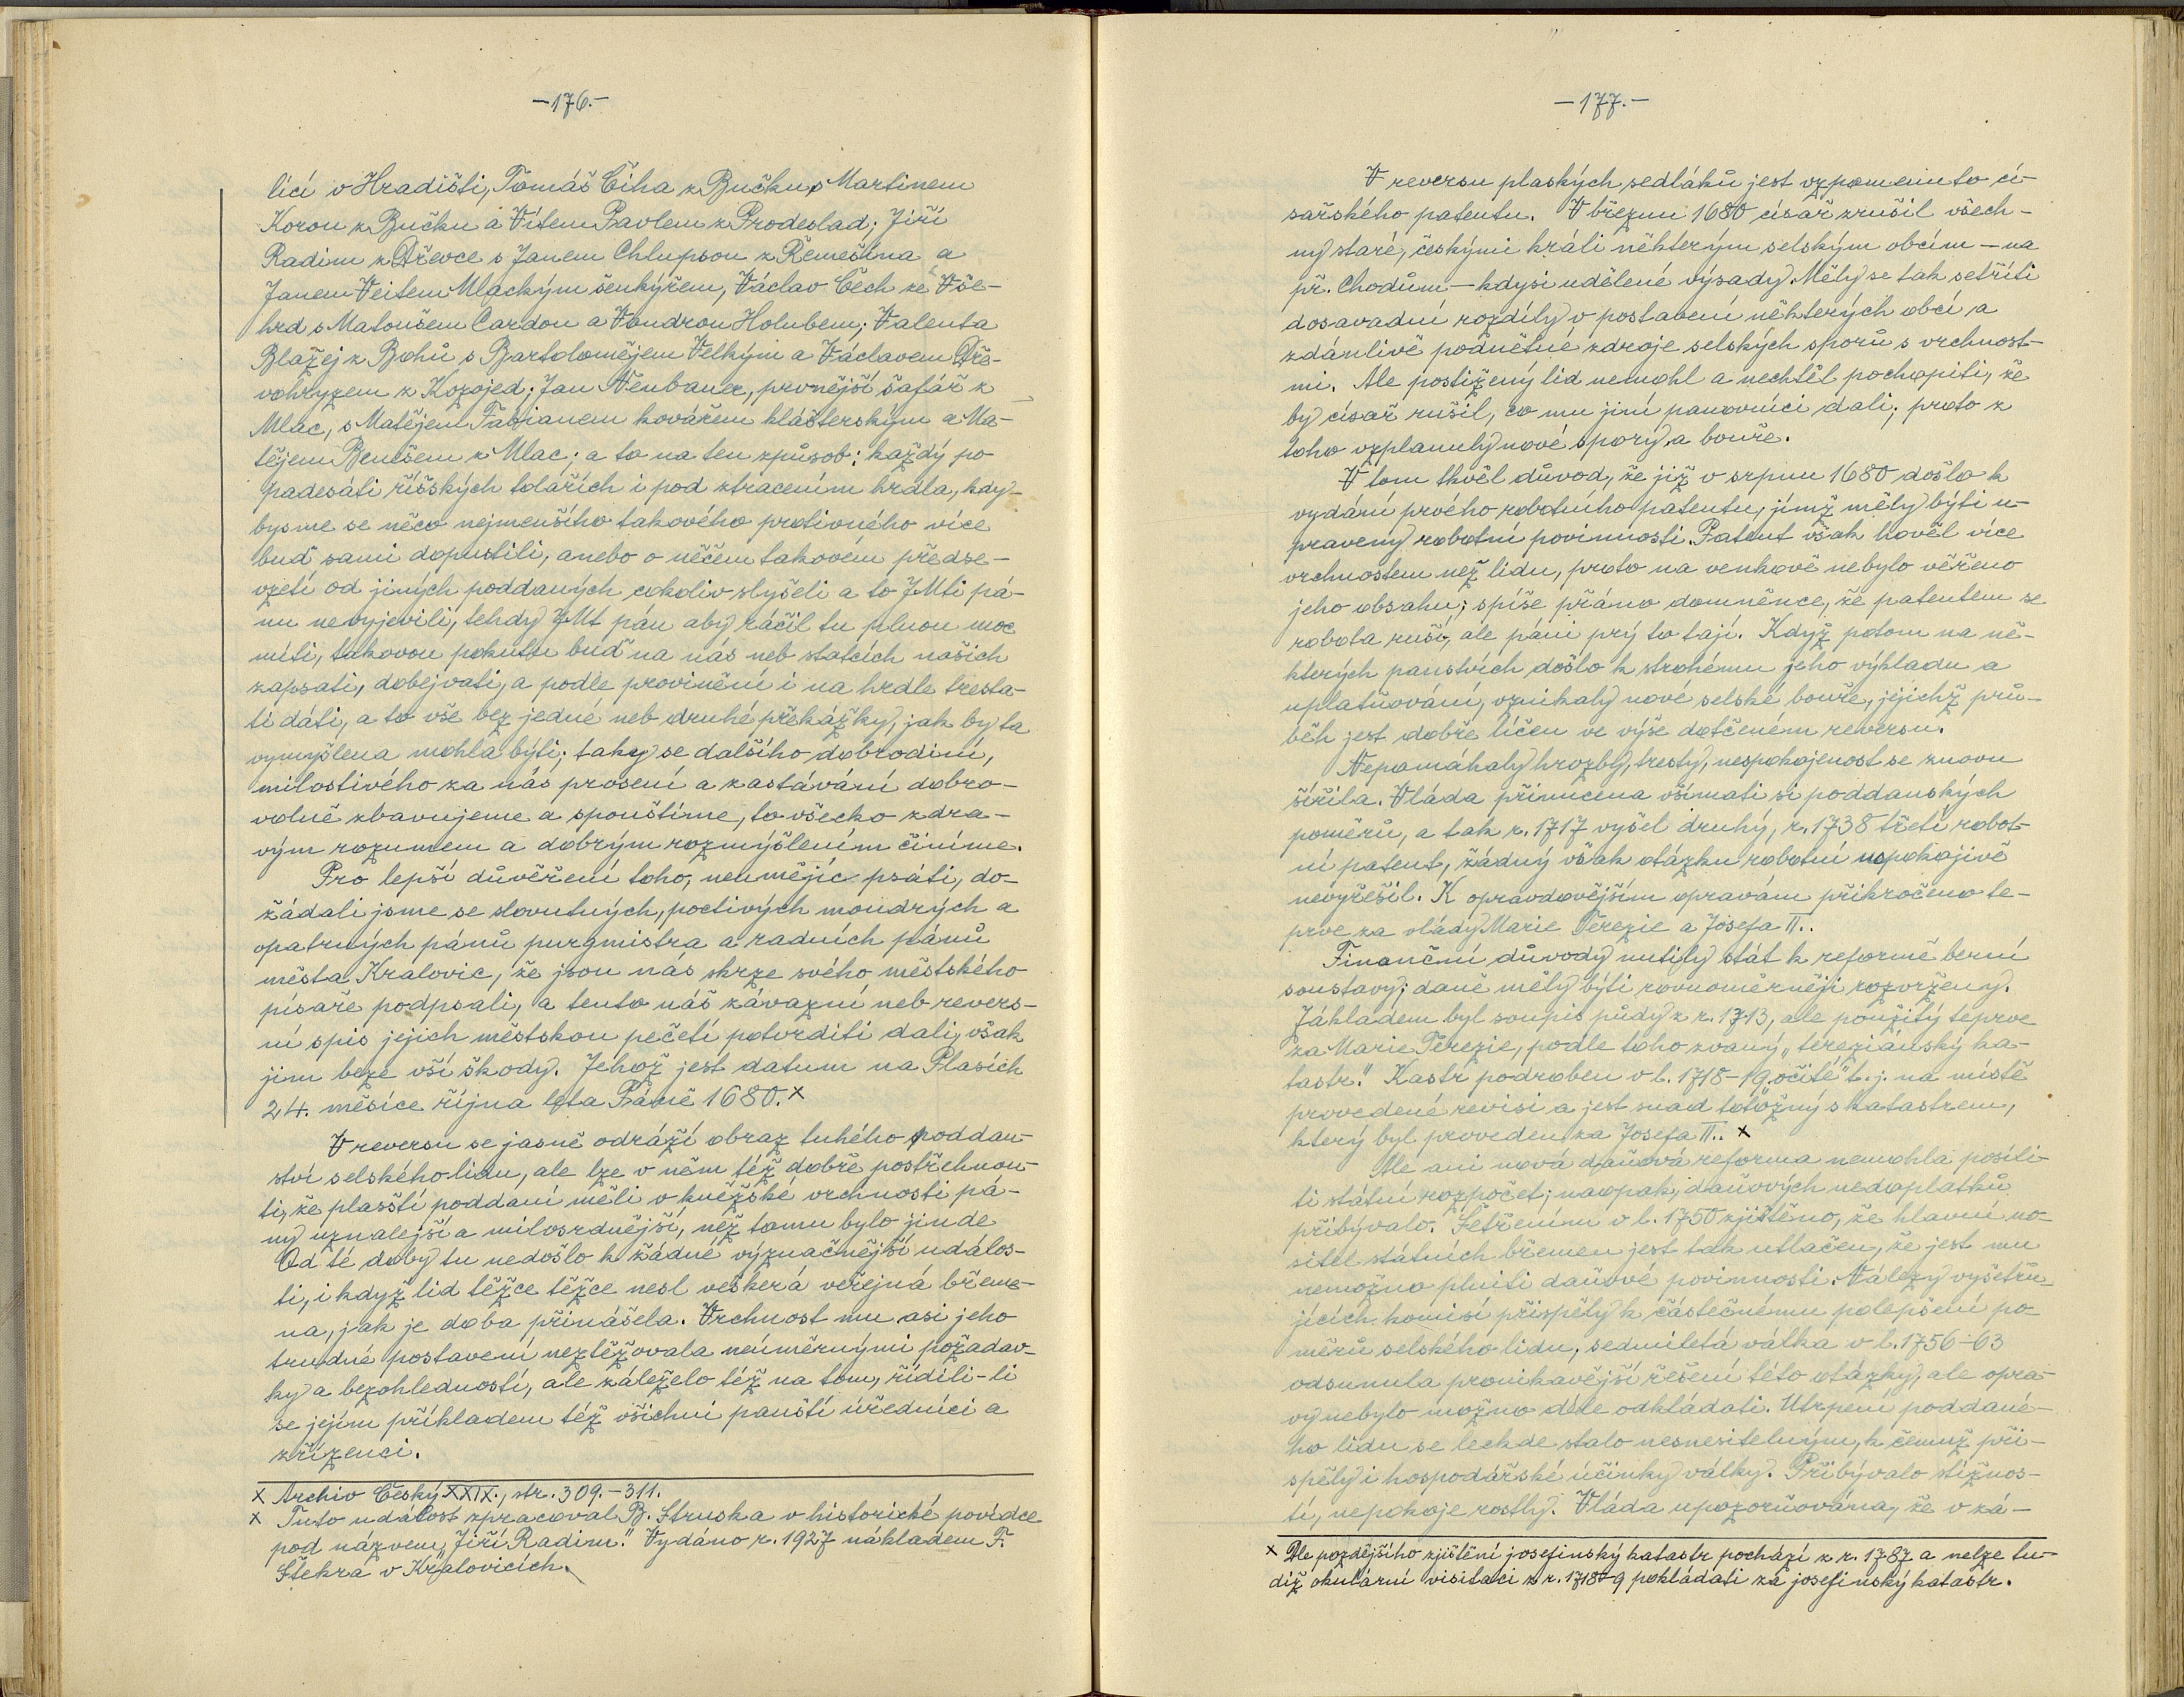 -176.-
licí v Hradišti, Tomáš Číha z Bučku s Martinem
Korou z Bučku a Vítem Pavlem z Prodeslad; Jiří
Radim z Dřevce s Janem Chlupsou z Řemešína a
Janem Veitem Mlackým šenkýřem, Václav Čech ze Vše-
hrd s Matoušem Cardou a Vondrou Holubem; Valenta
Blažej z Bohů s Bartolomějem Velkým a Václavem Dře-
vohryzem z Kozojed; Jan Neubauer, prvnější šafář z
Mlac, s Matějem Fabianem kovářem klášterským a Ma-
tějem Benešem z Mlac; a to na ten způsob: každý po
padesáti říšských tolařích i pod ztracením hrdla, kdy-
bysme se něco nejmenšího takového protivného více
buď sami dopustili, anebo o něčem takovém předse-
vzetí od jiných poddaných cokoliv slyšeli a to JMti pá-
nu nevyjevili, tehdy JMt pán aby ráčil tu plnou moc
míti, takovou pokutu buď na nás neb statcích našich
zapsati, dobejvati, a podle provinění i na hrdle tresta-
ti dáti, a to vše bez jedné neb druhé překážky, jak by ta
vymyšlena mohla býti; taky se dalšího dobrodiní,
milostivého za nás prosení a zastávání dobro-
volně zbavujeme a spouštíme, to všecko zdra-
vým rozumem a dobrým rozmýšlením činíme.
Pro lepší důvěření toho, neumějíc psáti, do-
žádali jsme se slovutných, poctivých moudrých a
opatrných pánů purgmistra a radních pánů
města Kralovic, že jsou nás skrze svého městského
písaře podpsali, a tento náš závazní neb revers-
ní spis jejich městskou pečetí potvrditi dali, však
jim beze vší škody. Jehož jest datum na Plasích
24. měsíce října léta Páně 1680.x
V reversu se jasně odráží obraz tuhého poddan-
ství selského lidu, ale lze v něm též dobře postřehnou-
ti, že plasští poddaní měli v kněžské vrchnosti pá-
ny uznalejší a milosrdnější, než tomu bylo jinde
Od té doby tu nedošlo k žádné význačnější událos-
ti, i když lid těžce těžce nesl veškerá veřejná břeme-
na, jak je doba přinášela. Vrchnost mu asi jeho
trudné postavení neztěžovala neúměrnými požadav-
ky a bezohledností, ale záleželo též na tom, řídili-li
se jejím příkladem též všichni panští úředníci a
zřízenci.
x Archiv Český XXIX., str. 309.-311.
x Tuto událost zpracoval B. Struska v historické povídce
pod názvem „Jiří Radim." Vydáno r. 1927 nákladem F.
Štekra v Kralovicích.
-177.-
V reversu plaských sedláků jest vzpomenuto cí-
sařského patentu. V březnu 1680 císař zrušil všech-
ny staré, českými králi některým selským obcím - na
př. Chodům - kdysi udělené výsady. Měly se tak setříti
dosavadní rozdíly v postavení některých obcí a
zdánlivě podnětné zdroje selských sporů s vrchnost-
mi. Ale postižený lid nemohl a nechtěl pochopiti, že
by císař rušil, co mu jiní panovníci dali; proto z
toho vzplanuly nové spory a bouře.
V tom tkvěl důvod, že již v srpnu 1680 došlo k
vydání prvého robotního patentu, jímž měly býti u-
praveny robotní povinnosti. Patent však hověl více
vrchnostem než lidu, proto na venkově nebylo věřeno
jeho obsahu; spíše přáno domněnce, že patentem se
robota ruší, ale páni prý to tají. Když potom na ně-
kterých panstvích došlo k strohému jeho výkladu a
uplatňování, vznikaly nové selské bouře, jejichž prů-
běh jest dobře líčen ve výše dotčeném reversu.
Nepomáhaly hrozby, tresty, nespokojenost se znovu
šířila. Vláda přinucena všímati si poddanských
poměrů, a tak r. 1717 vyšel druhý, r. 1738 třetí robot-
ní patent, žádný však otázku robotní uspokojivě
nevyřešil. K opravdovějším opravám přikročeno te-
prve za vlády Marie Terezie a Josefa II..
Finanční důvody nutily stát k reformě berní
soustavy; daně měly býti rovnoměrněji rozvrženy.
Základem byl soupis půdy z r. 1713, ale použitý teprve
za Marie Terezie, podle toho zvaný „tereziánský ka-
tastr." Kastr podroben v l. 1718-19 „očité" t. j. na místě
provedené revisi a jest snad totožný s katastrem,
který byl proveden za Josefa II.. x
Ale ani nová daňová reforma nemohla posíli-
ti státní rozpočet; naopak, daňových nedoplatků
přibývalo. Šetřením v l. 1750 zjištěno, že hlavní no-
sitel státních břemen jest tak utlačen, že jest mu
nemožno plniti daňové povinnosti. Nálezy vyšetřu-
jících komisí přispěly k částečnému polepšení po-
měrů selského lidu, sedmiletá válka v l. 1756-63
odsunula pronikavější řešení této otázky, ale opra-
vy nebylo možno déle odkládati. Utrpení poddané-
ho lidu se leckde stalo nesnesitelným, k čemuž při-
spěly i hospodářské účinky války. Přibývalo stížnos-
tí, nepokoje rostly. Vláda upozorňována, že v zá-
x Dle pozdějšího zjištění josefinský katastr pochází z r. 1787 a nelze tu-
díž okulární visitaci z r. 1718-9 pokládati za josefinský katastr.